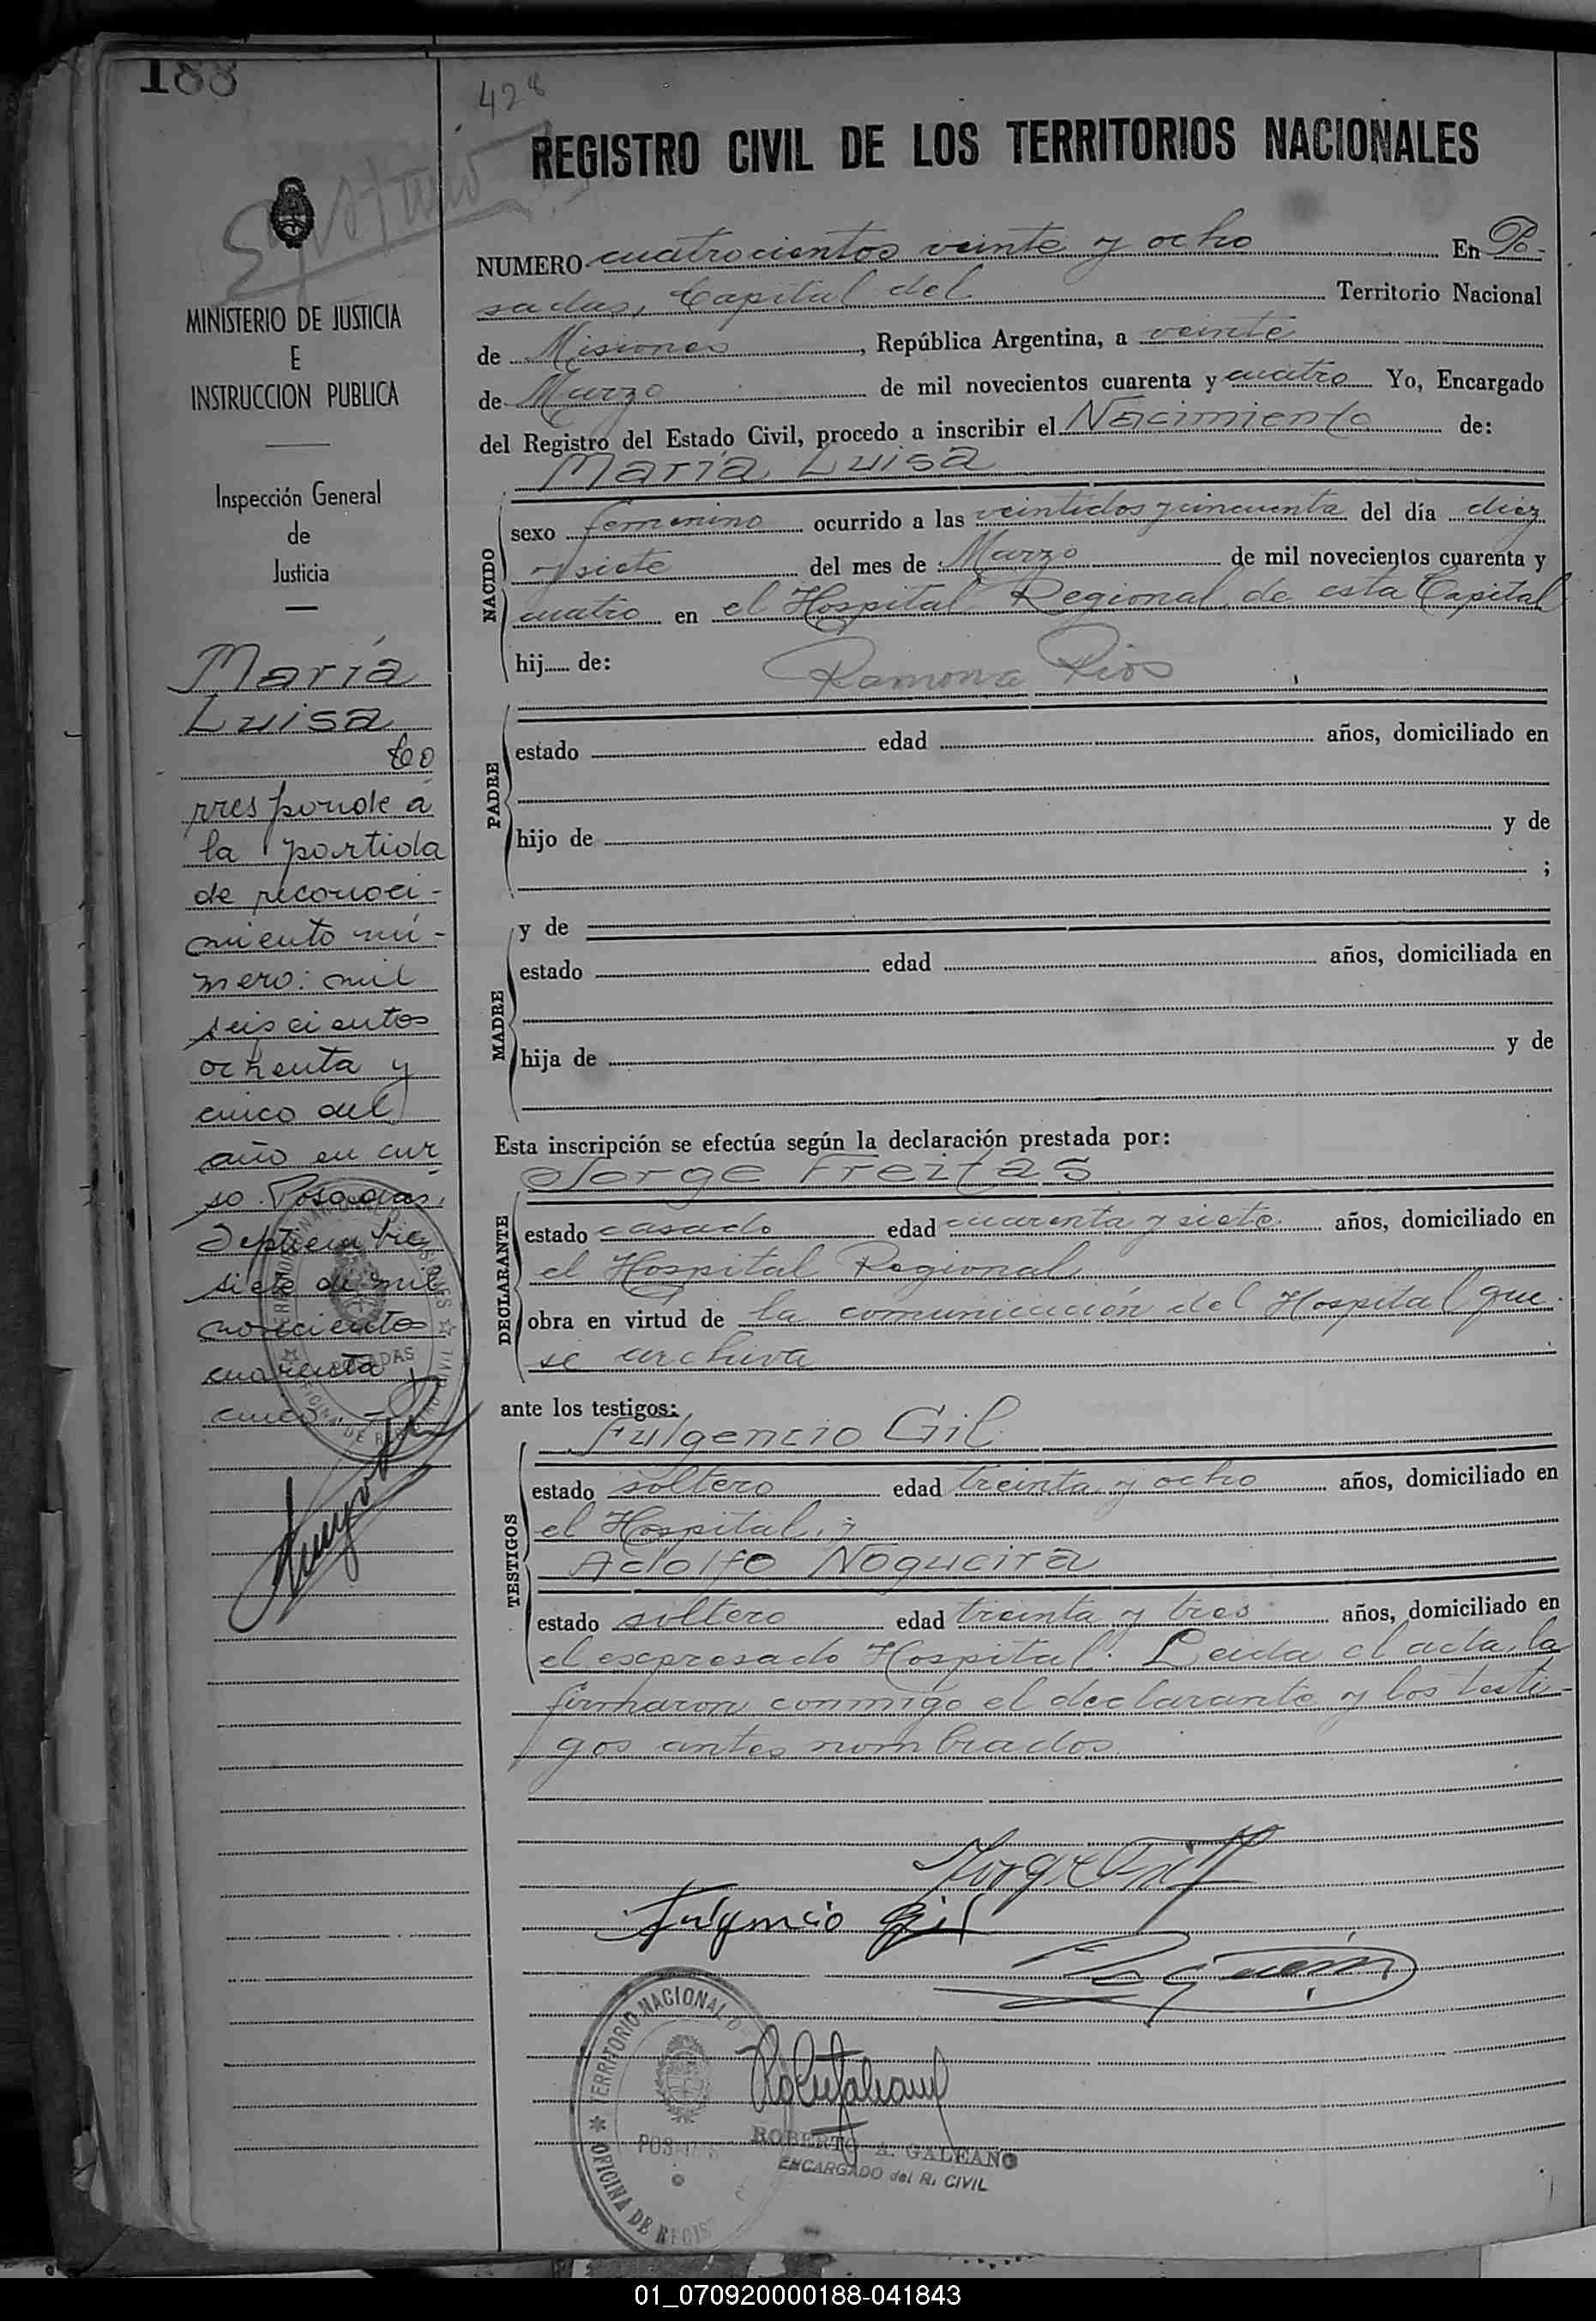 188
428
REGISTRO CIVIL DE LOS TERRITORIOS NACIONALES
MINISTERIO DE JUSTICIA
E
INSTRUCCION PUBLICA
Inspección General
de
Justicia
María
Luisa
Co
rresponde a
la partida
de reconoci-
miento nú-
mero: mil
seiscientos
ochenta y
cinco del
año en cur
so. Posadas,
Septiembre
siete de mil
novecientos
cuarenta y
cinco.-
NUMERO cuatrocientos veinte y ocho En Po-
sadas, Capital del Territorio Nacional
de Misiones, República Argentina, a veinte
de Marzo de mil novecientos cuarenta y cuatro Yo, Encargado
del Registro del Estado Civil, procedo a inscribir el Nacimiento de:
María Luisa
NACIDO
sexo femenino ocurrido a las veintidos y cincuenta del día diez
y siete del mes de Marzo de mil novecientos cuarenta y
cuatro en el Hospital Regional de esta Capital
hij de:
Ramona Rios
PADRE
estado edad años, domiciliado en
hijo de y de
;
MADRE
y de
estado edad años, domiciliada en
hija de y de
Esta inscripción se efectúa según la declaración prestada por:
Jorge Freitas
DECLARANTE
estado casado edad cuarenta y siete años, domiciliado en
el Hospital Regional
obra en virtud de la comunicación del Hospital que
se archiva
ante los testigos:
Fulgencio Gil
TESTIGOS
estado soltero edad treinta y ocho años, domiciliado en
el Hospital, y
Adolfo Nogueira
estado soltero edad treinta y tres años, domiciliado en
el expresado Hospital. Leida el acta, la
firmaron conmigo el declarante y los testi-
gos antes nombrados
Fulgencio Gil
TERRITORIO NACIONAL
POSADAS
OFICINA DE REGIS
ROBERTO A. GALEANO
ENCARGADO del R. CIVIL
01_070920000188-041843